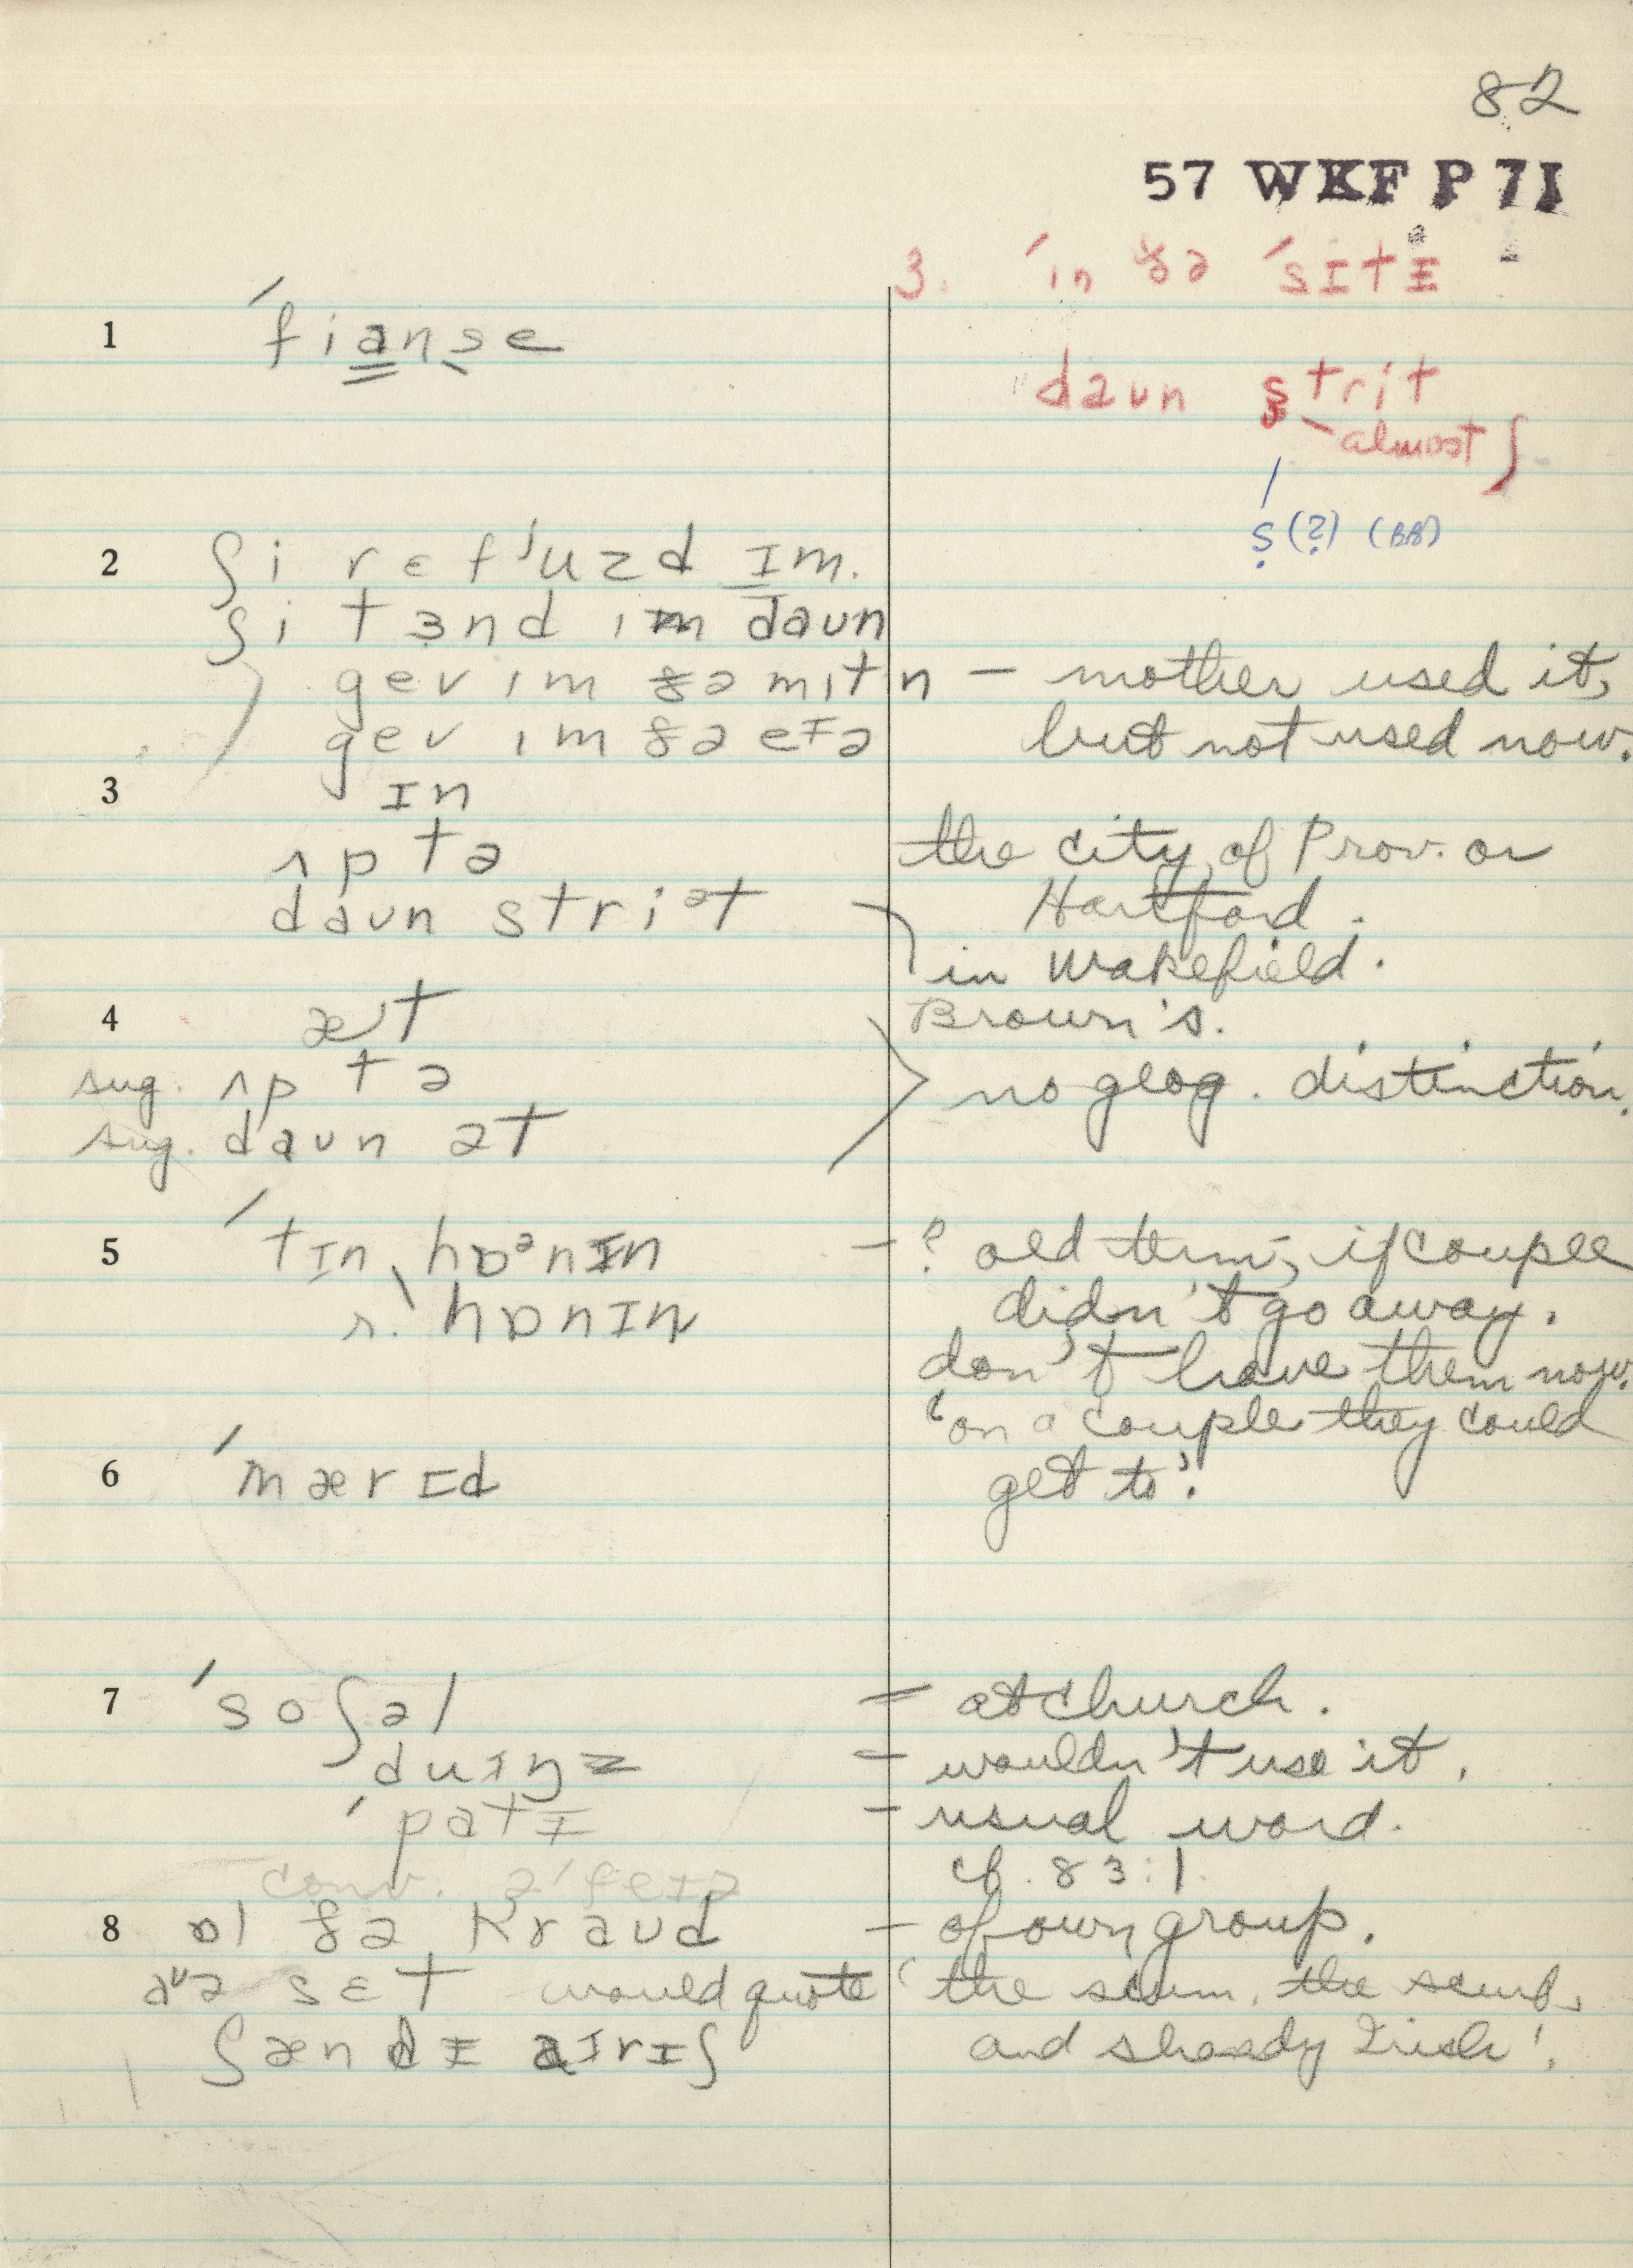 82
57 WKF P 71
3. ˈin ðə ˈsɪtɪ
1 ˈfianse
daun strit
almost ʃ
ṣ (?) (BB)
2 ʃi rɛfˈuzd ɪm.
ʃi tɜnd im daun
gev im ðə mitn – mother used it,
gev im ðə eɪə but not used now.
3 ɪn
ʌp tə the city of Prov. or
daun striət Hartford.
in Wakefield.
4 æt Brown's.
sug. ʌp tə no geog. distinction.
sug. daun ət
5 ˈtɪn ˌhɒᵊnɪn – ? old term, if couple
r. hɒnɪn didn't go away.
don't have them now.
'on a couple they could
6 ˈmærɪd get to'.
7 ˈsoʃəl = at church.
duɪŋz = wouldn't use it.
ˈpatɪ – usual word.
conv. əˈfeɪə cf. 83:1.
8 ɒl ðə kraud – of own group.
aᶷə sɛt would quote 'the scum, the scruf,
ʃændɪ aɪrɪʃ and shandy Irish'.